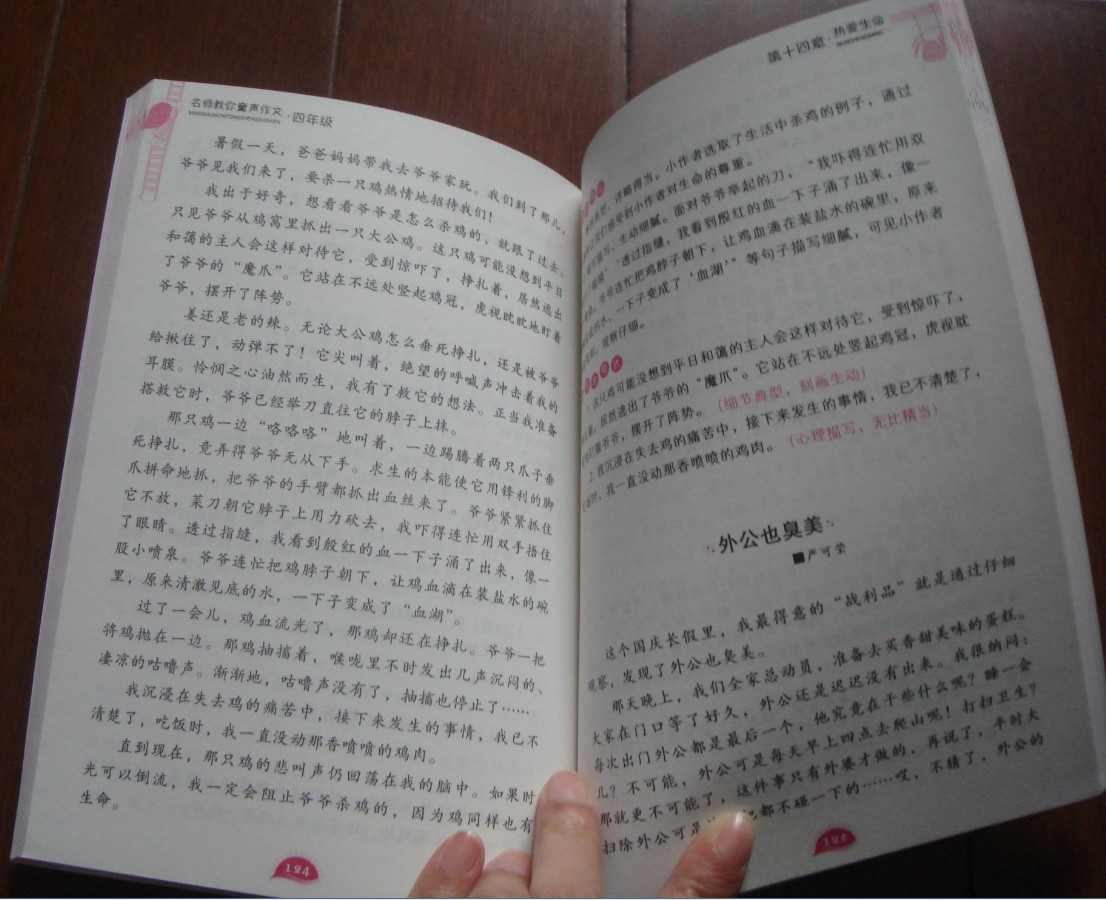 名师教你童声作文·四年级
MINGSHIJIAONITONGSHENGZUOWEN
暑假一天，爸爸妈妈带我去爷爷家玩。我们到了那儿，
爷爷见我们来了，要杀一只鸡热情地招待我们！
我出于好奇，想看看爷爷是怎么杀鸡的，就跟了过去。
只见爷爷从鸡窝里抓出一只大公鸡。这只鸡可能没想到平日
和蔼的主人会这样对待它，受到惊吓了，挣扎着，居然逃出
了爷爷的“魔爪”。它站在不远处竖起鸡冠，虎视眈眈地盯着
爷爷，摆开了阵势。
姜还是老的辣。无论大公鸡怎么垂死挣扎，还是被爷爷
给揪住了，动弹不了！它尖叫着，绝望的呼喊声冲击着我的
耳膜。怜悯之心油然而生，我有了救它的想法。正当我准备
搭救它时，爷爷已经举刀直往它的脖子上抹。
那只鸡一边“咯咯咯”地叫着，一边踢腾着两只爪子垂
死挣扎，竟弄得爷爷无从下手。求生的本能使它用锋利的脚
爪拼命地抓，把爷爷的手臂都抓出血丝来了。爷爷紧紧抓住
它不放，菜刀朝它脖子上用力砍去，我吓得连忙用双手捂住
了眼睛。透过指缝，我看到殷红的血一下子涌了出来，像一
股小喷泉。爷爷连忙把鸡脖子朝下，让鸡血滴在装盐水的碗
里，原来清澈见底的水，一下子变成了“血湖”。
过了一会儿，鸡血流光了，那鸡却还在挣扎。爷爷一把
将鸡抛在一边。那鸡抽搐着，喉咙里不时发出几声沉闷的、
凄凉的咕噜声。渐渐地，咕噜声没有了，抽搐也停止了……
我沉浸在失去鸡的痛苦中，接下来发生的事情，我已不
清楚了，吃饭时，我一直没动那香喷喷的鸡肉。
直到现在，那只鸡的悲叫声仍回荡在我的脑中。如果时
光可以倒流，我一定会阻止爷爷杀鸡的，因为鸡同样也有
生命。
124
第十四章·热爱生命
REAISHENGMING
详略得当。小作者选取了生活中杀鸡的例子，通过
们感受到小作者对生命的尊重。
描写，生动细腻。面对爷爷举起的刀，“我吓得连忙用双
”“透过指缝，我看到殷红的血一下子涌了出来，像一
爷爷连忙把鸡脖子朝下，让鸡血滴在装盐水的碗里，原来
的水，一下子变成了‘血湖’”等句子描写细腻，可见小作者
观察仔细。
1.这只鸡可能没想到平日和蔼的主人会这样对待它，受到惊吓了，
着，居然逃出了爷爷的“魔爪”。它站在不远处竖起鸡冠，虎视眈
地盯着爷爷，摆开了阵势。（细节典型，刻画生动）
2.我沉浸在失去鸡的痛苦中，接下来发生的事情，我已不清楚了，
时，我一直没动那香喷喷的鸡肉。（心理描写，无比精当）
外公也臭美
■严可莹
这个国庆长假里，我最得意的“战利品”就是通过仔细
观察，发现了外公也臭美。
那天晚上，我们全家总动员，准备去买香甜美味的蛋糕。
大家在门口等了好久，外公还是迟迟没有出来。我很纳闷：
每次出门外公都是最后一个，他究竟在干些什么呢？睡一会
儿？不可能，外公可是每天早上四点去爬山呢！打扫卫生？
那就更不可能了，这件事只有外婆才做的，再说了，平时大
扫除外公可是都不碰一下的……哎，不猜了，外公的
125